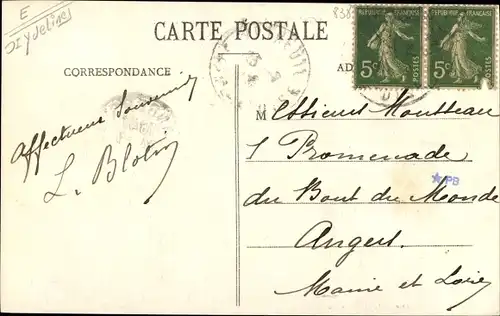 E
(Yvelines)
CARTE POSTALE
838
REPUBLIQUE FRANÇAISE
5c POSTES
REPUBLIQUE FRANÇAISE
5c POSTES
CORRESPONDANCE
AD
Affectueux Souvenir
L. Blotin
Messieurs Mousseau
1 Promenade
PB
du Bout du Monde
Angers
Maine et Loire